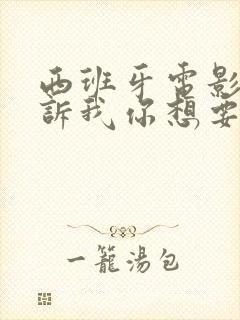 西班牙電影
訴我你想要
一籠湯包